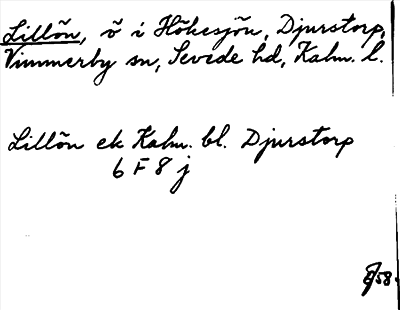 Lillön, ö i Hökesjön, Djurstorp,
Vimmerby sn, Sevede hd, Kalm. l.
Lillön ek Kalm. bl. Djurstorp
6 F 8 j
58